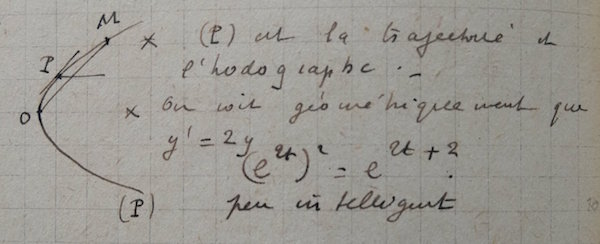 M
× (P) est la trajectoire et
P
l'hodographe. –
O
× On voit géométriquement que
y' = 2y
(e^{2t})^2 = e^{2t + 2}.
(P)
peu intelligent